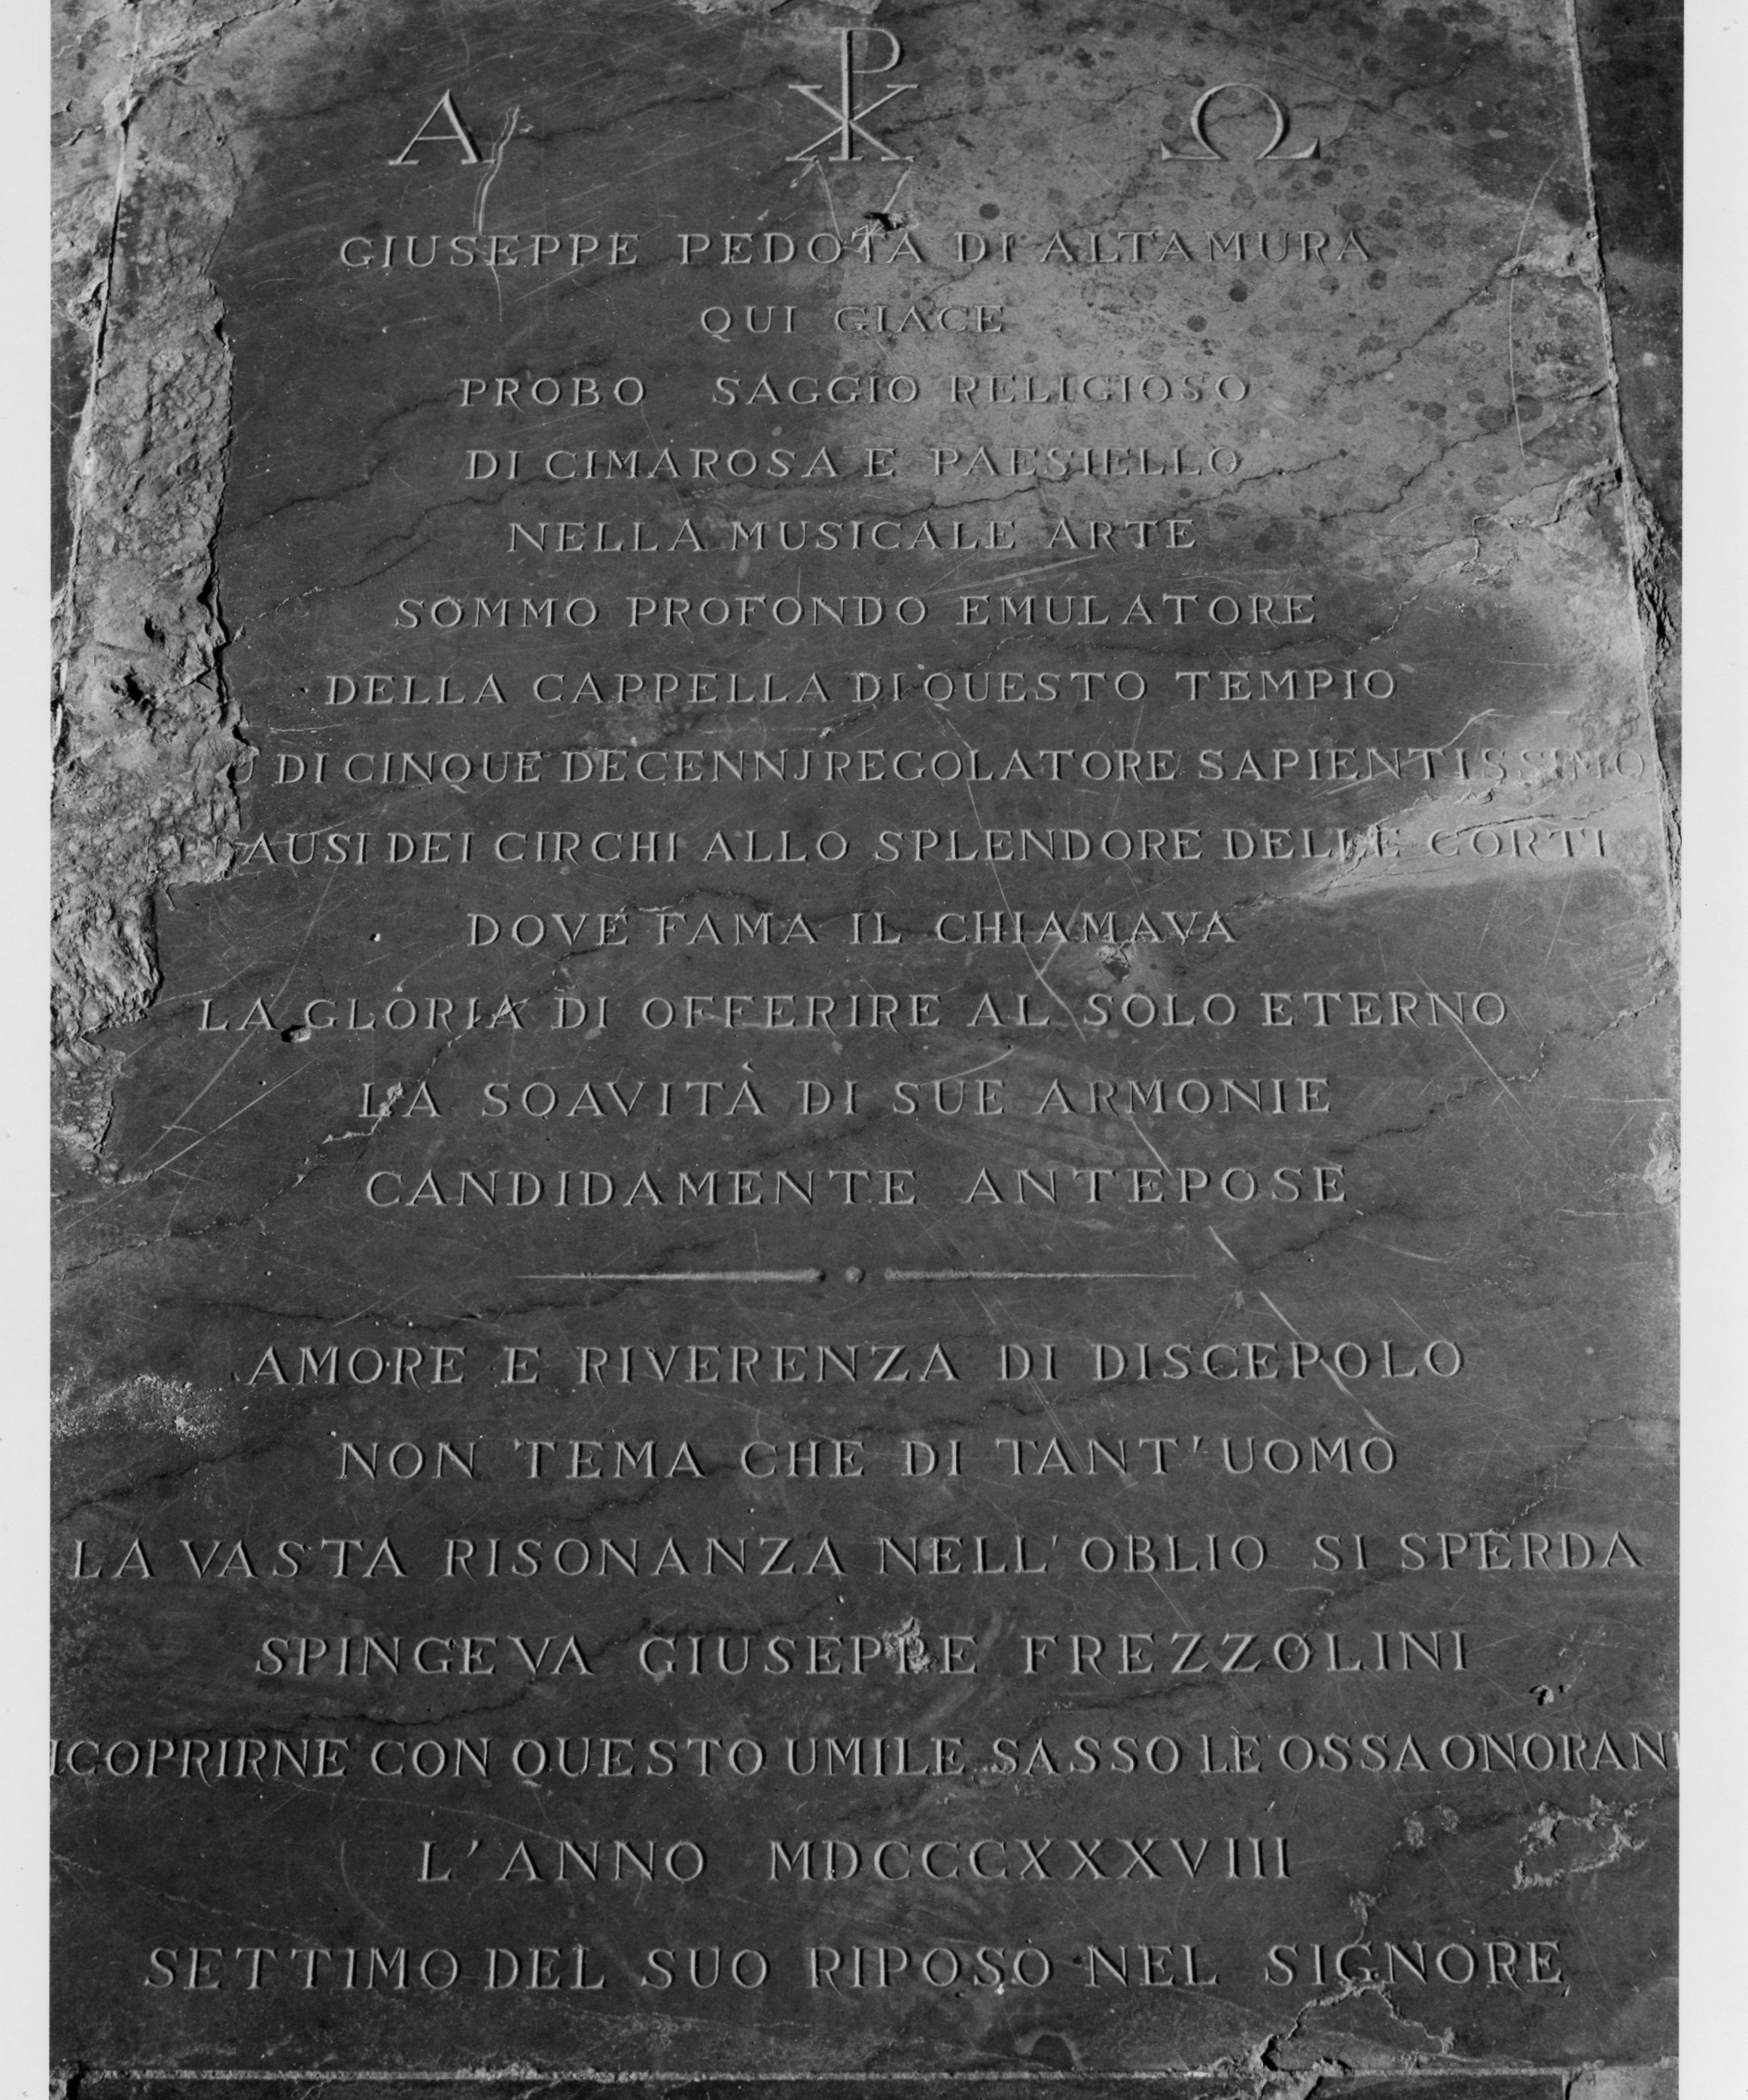 Α ☧ Ω
GIUSEPPE PEDOTA DI ALTAMURA
QUI GIACE
PROBO SAGGIO RELIGIOSO
DI CIMAROSA E PAESIELLO
NELLA MUSICALE ARTE
SOMMO PROFONDO EMULATORE
DELLA CAPPELLA DI QUESTO TEMPIO
DI CINQUE DECENNJ REGOLATORE SAPIENTISSIMO
AUSI DEI CIRCHI ALLO SPLENDORE DELLE CORTI
DOVE FAMA IL CHIAMAVA
LA GLORIA DI OFFERIRE AL SOLO ETERNO
LA SOAVITÀ DI SUE ARMONIE
CANDIDAMENTE ANTEPOSE
AMORE E RIVERENZA DI DISCEPOLO
NON TEMA CHE DI TANT' UOMO
LA VASTA RISONANZA NELL' OBLIO SI SPERDA
SPINGEVA GIUSEPPE FREZZOLINI
ICOPRIRNE CON QUESTO UMILE SASSO LE OSSA ONORAN
L' ANNO MDCCCXXXVIII
SETTIMO DEL SUO RIPOSO NEL SIGNORE